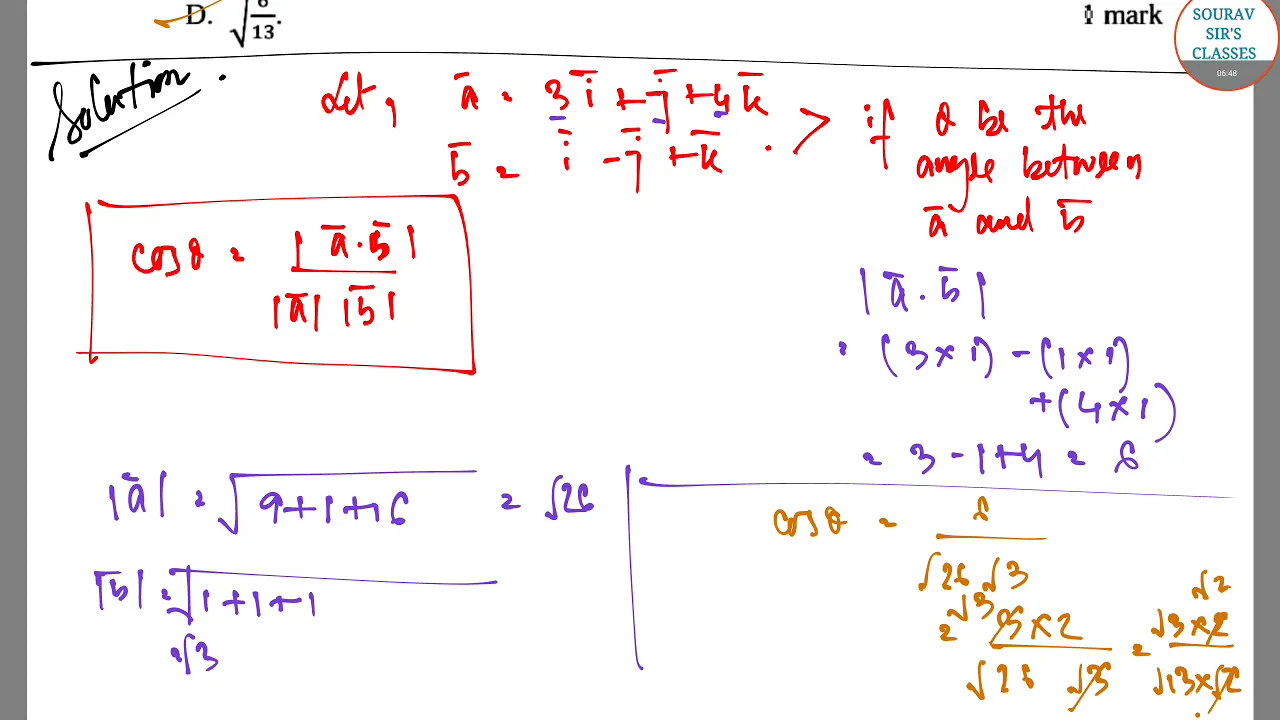 D. √6/13.
1 mark
SOURAV
SIR'S
CLASSES
06:48
Solution.
Let, a̅ = 3i̅ + j̅ + 4k̅
b̅ = i̅ - j̅ + k̅ . >
if θ be the
angle between
a̅ and b̅
cosθ = |a̅.b̅| / |a̅| |b̅|
|a̅.b̅|
= (3×1) - (1×1)
+(4×1)
= 3 - 1 + 4 = 6
|a̅| = √9+1+16 = √26
|b̅| = √1+1+1
=√3
cosθ = 6 / √26 √3
= √3 3×2 / √26 √3 = √3×2 √2 / √13×√2